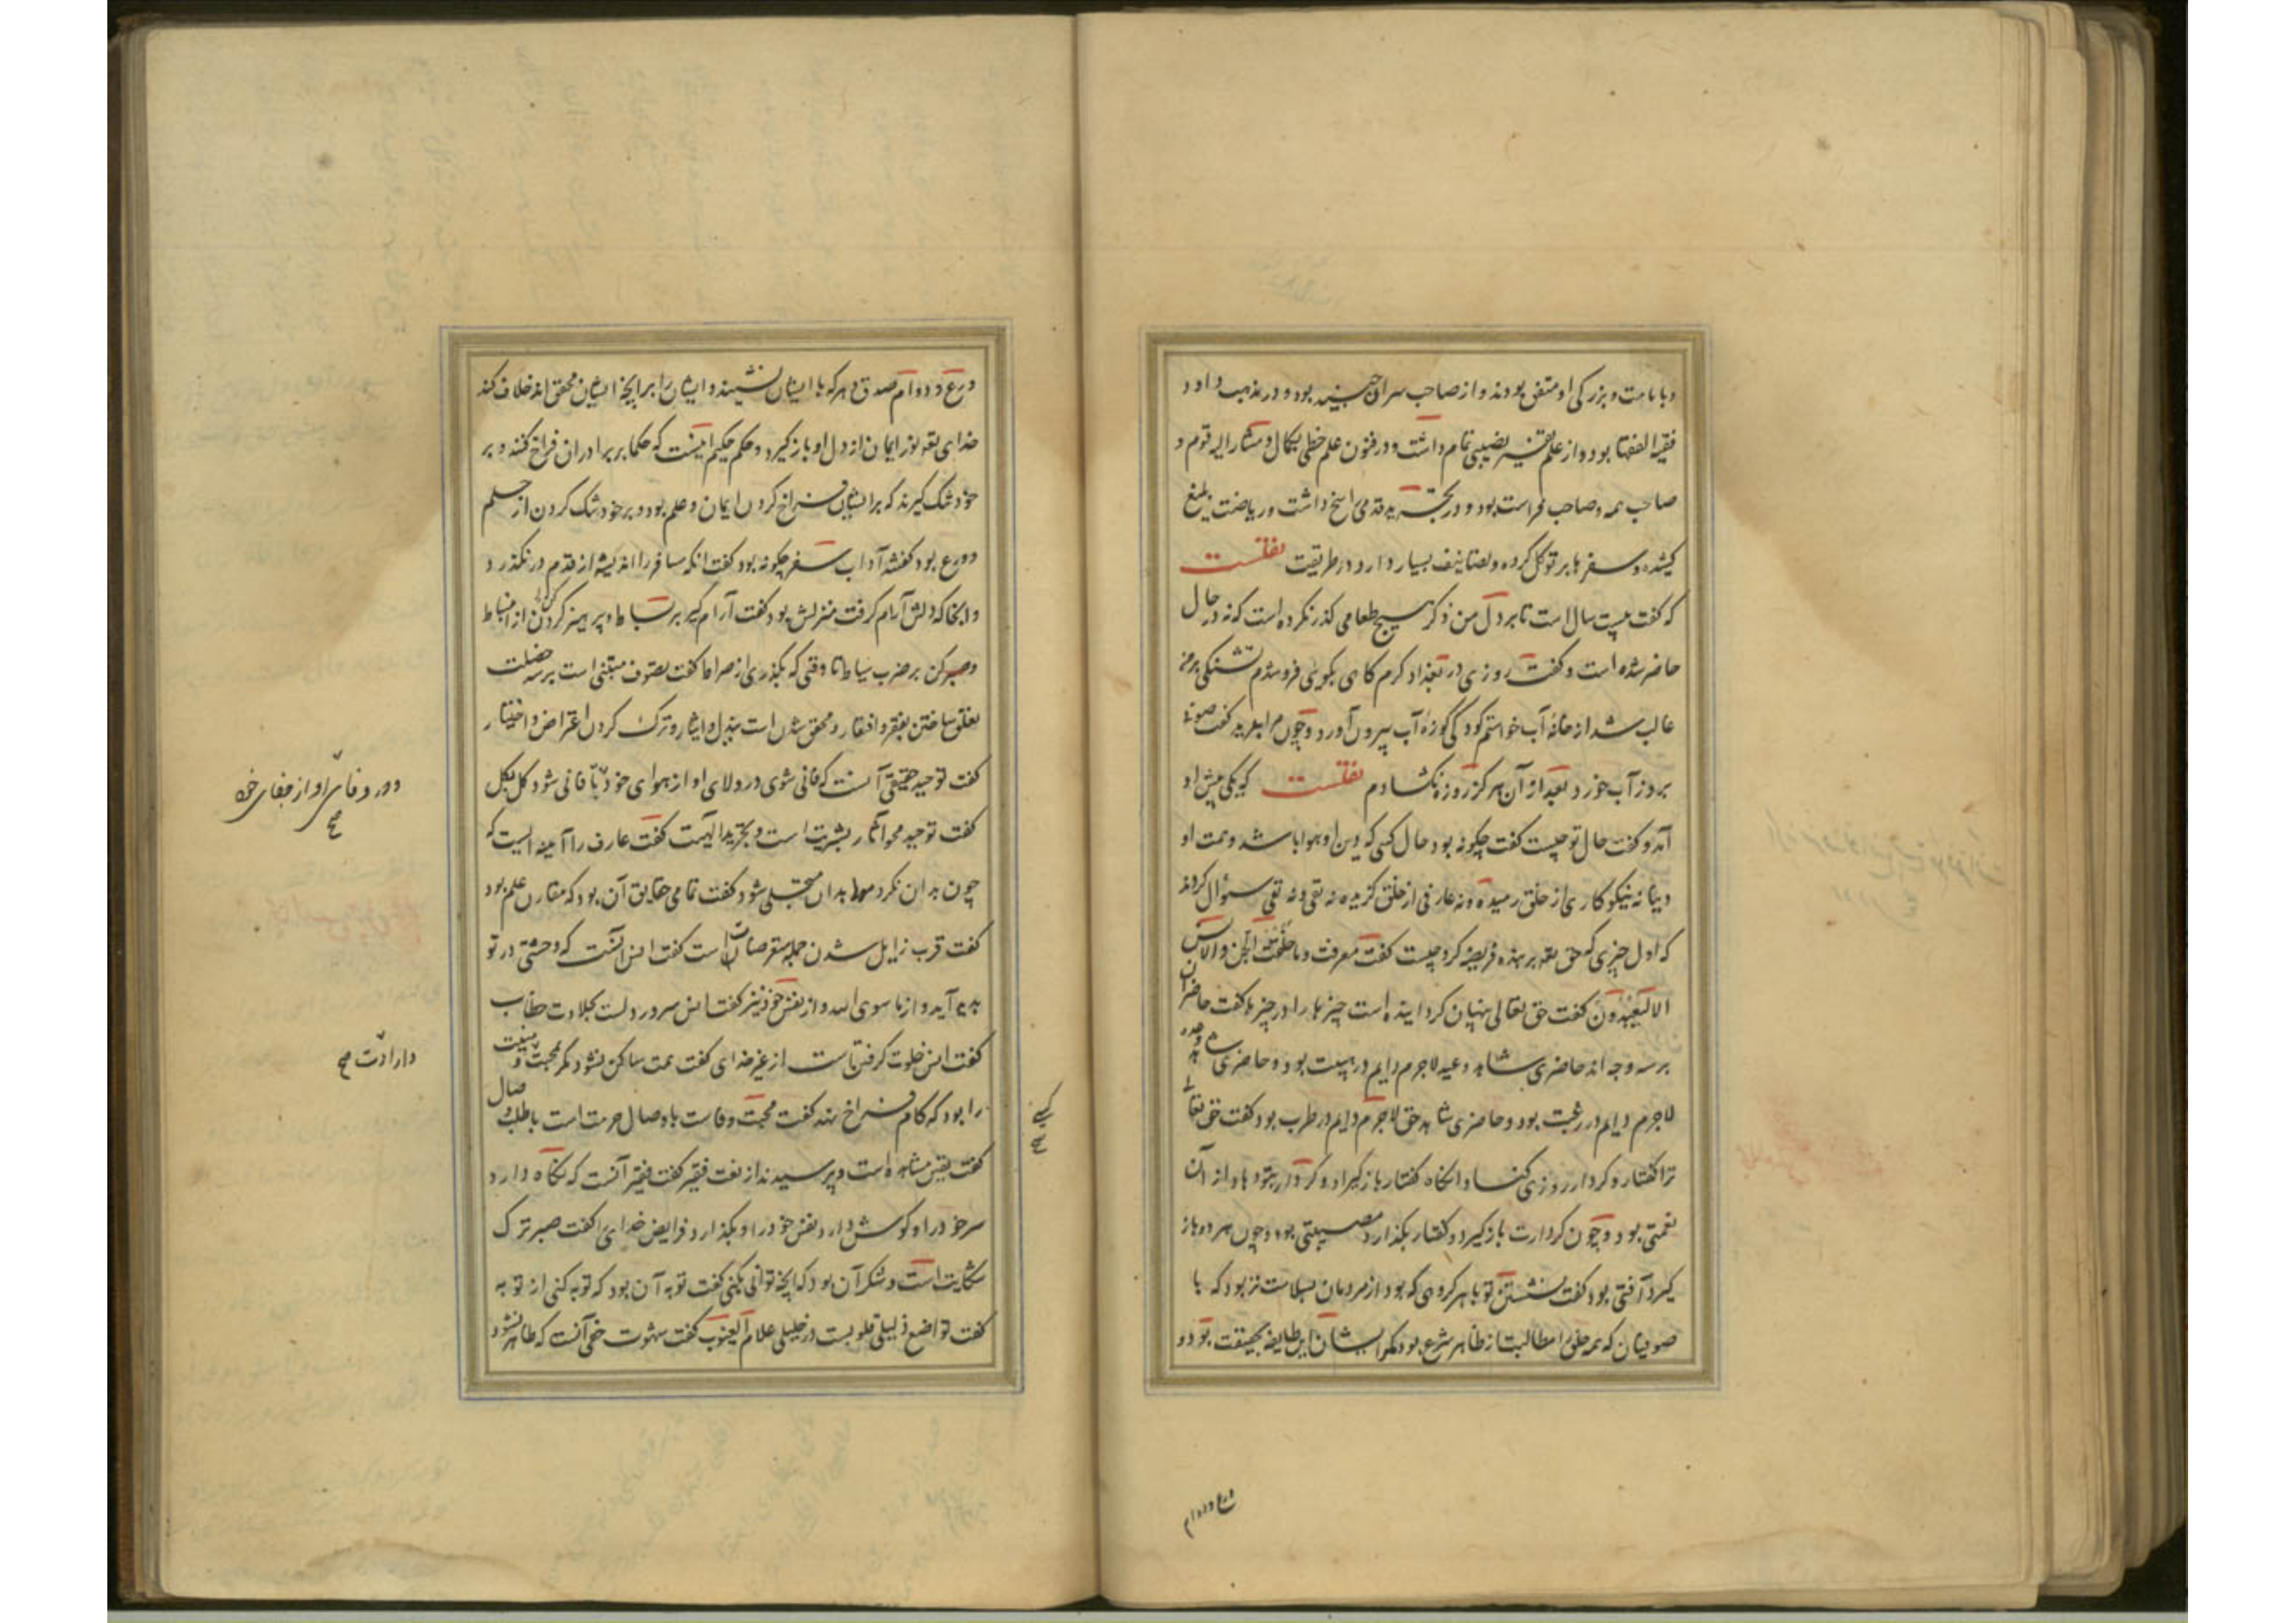 و با مامت و بزرکی او متفق بودند و از صاحب سران جنید بود و در مذهب داود
فقیه الفقها بود و از علم تفسیر نصیبی تمام داشت و در فنون علم خطی بکمال و مشار الیه قوم و
صاحب همه و صاحب فراست بود و در تجرید قدمی راسخ داشت و ریاضت بلیغ
کشیده و سفرها بر توکل کرده و تصانیف بسیار دارد در طریقت نقلست
که کفت بیست سال است تا بر دل من ذکر هیچ طعامی کذر نکرده است که نه در حال
حاضر شده است و کفت روزی در بغداد کرم کاهی بکویی فرو شدم تشنکی بر من
غالب شد از خانهٔ آب خواستم کودکی کوزهٔ آب بیرون آورد و چون مرا بدید کفت صوفی
بروز آب خورد بعد از آن هرکز روزه نکشادم نقلست که یکی پیش او
آمد و کفت حال تو چیست کفت چکونه بود حال کسی که دین او هوا باشد و همت او
دنیا نه نیکو کاری از خلق رمیده و نه عارفی از خلق کزیده نه تقی و نه نقی سؤال کردند
که اول چیزی که حق تعه بر بنده فریضه کرد چیست کفت معرفت و ما خلقت الجن والانس
الا لیعبدون کفت حق تعالی پنهان کردانیده است چیزها را در چیزها کفت حاضران
بر سه وجه اند حاضری شاهد وعید لاجرم دایم در هیبت بود و حاضری شاهد وعده
لاجرم دایم در رغبت بود و حاضری شاهد حق لاجرم دایم در طرب بود کفت حق تعالی
ترا کفتار و کردار روزی کند و انکاه کفتار باز کیرد و کردار بتو دهد از آن
نعمتی بود و چون کردارت باز کیرد و کفتار بکذارد مصیبتی بود و چون هر دو باز
کیرد آفتی بود کفت نشستن تو با هر کروهی که بود از مردمان بسلامت تر بود که با
صوفیان که همه خلق را مطالبت از ظاهر شرع بود مکر ایشان این طایفه بحقیقت بود و
ورع و دوام
ورع و دوام صدق و هر که با ایشان نشیند و ایشان را بر انچه ایشان محقق اند خلاف کند
خدای تعه نور ایمان از دل او باز کیرد و حکم حکیم اینست که حکما بر برادران فراخ کنند و بر
خود تنک کیرند که بر ایشان فراخ کردن ایمان و علم بود و بر خود تنک کردن از حکم
ورع بود کفتند آداب سفر چکونه بود کفت انکه مسافر را اندیشه از قدم در نکذرد
و انجا که دلش آرام کرفت منزلش بود کفت آرام کیر بر بساط و پرهیز کن از انبساط
و صبر کن بر ضرب سیاط تا وقتی که بکذری از صراط کفت تصوف مبتنی است بر سه خصلت
تعلق ساختن بفقر و افتقار و محقق شدن است ببذل و ایثار و ترک کردن اعتراض و اختیار
کفت توحید حقیقی آنست که فانی شوی در ولای او از هوای خود تا فانی شود کل بکل
کفت توحید محو آثار بشریت است و تجرید الهیت کفت عارف را آینه ایست که
چون بدان نکرد مولا بدان متجلی شود کفت تمامی حقایق آن بود که مقارن علم بود
کفت قرب زایل شدن جمله متعرضات است کفت انس آنست که وحشتی در تو
پدید آید و از ما سوی الله و از نفس خود نیز کفت انس سرور دلست بحلاوت خطاب
کفت انس خلوت کرفتن است از غیر خدای کفت همت ساکن نشود مکر بمحبت و
را بود که کام فراخ نهد کفت محبت وفاست با وصال حرمت است با طلب وصال
کفت یقین مشاهده است و پرسیدند از نعت فقیر کفت فقیر آنست که نکاه دارد
سر خود را و کوش دارد نفس خود را و بکذارد فرایض خدای را کفت صبر ترک
شکایت است و شکر آن بود که انچه توانی بکنی کفت توبه آن بود که توبه کنی از توبه
کفت تواضع ذلیلی قلوبست در جلیلی علام الغیوب کفت شهوت خفی آنست که ظاهر نشود
در وفای او از جفای خود
صح
و ارادت صح